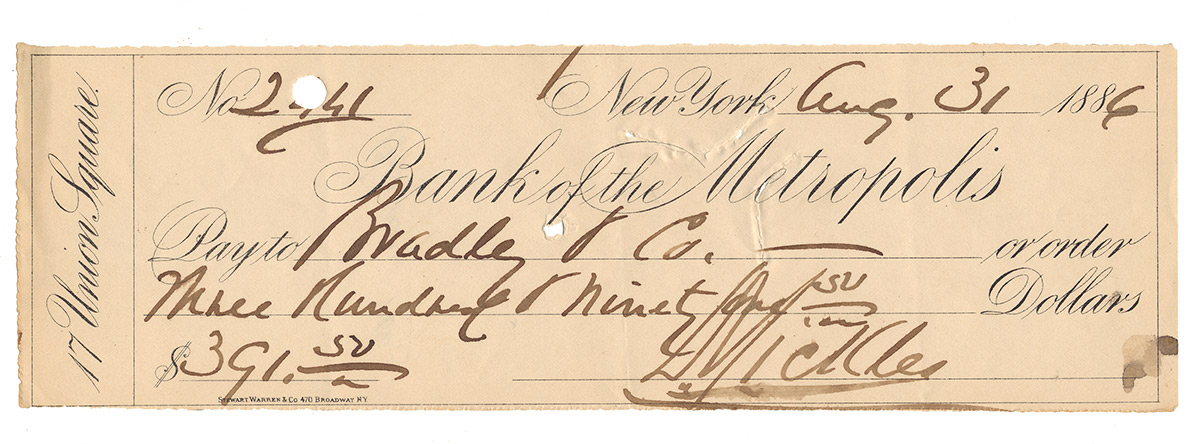 17 Union Square.
No 2441 New York Aug. 31 1886
Bank of the Metropolis
Pay to Bradley & Co. or order
Three Hundred & Ninety one 50/100 Dollars
$391. 50/100 D Sickles
STEWART WARREN & CO 470 BROADWAY NY